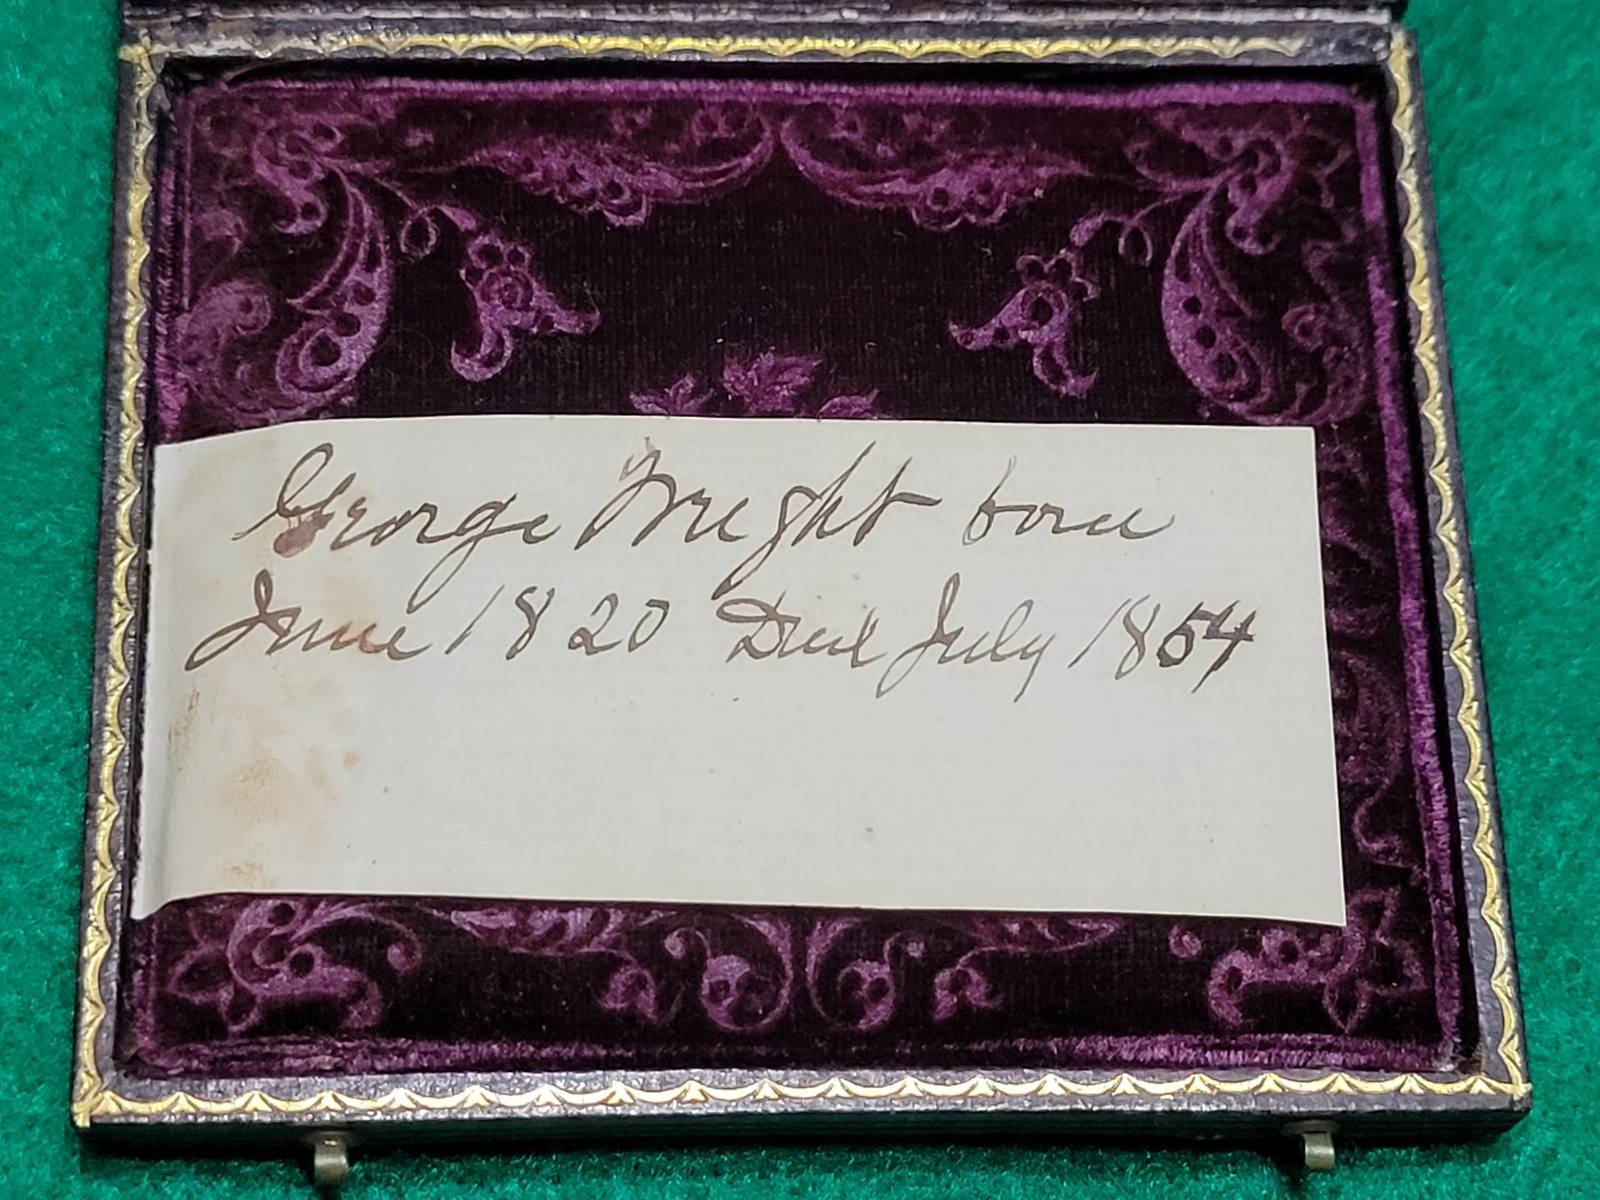 George Wright born
June 1820 Died July 1854